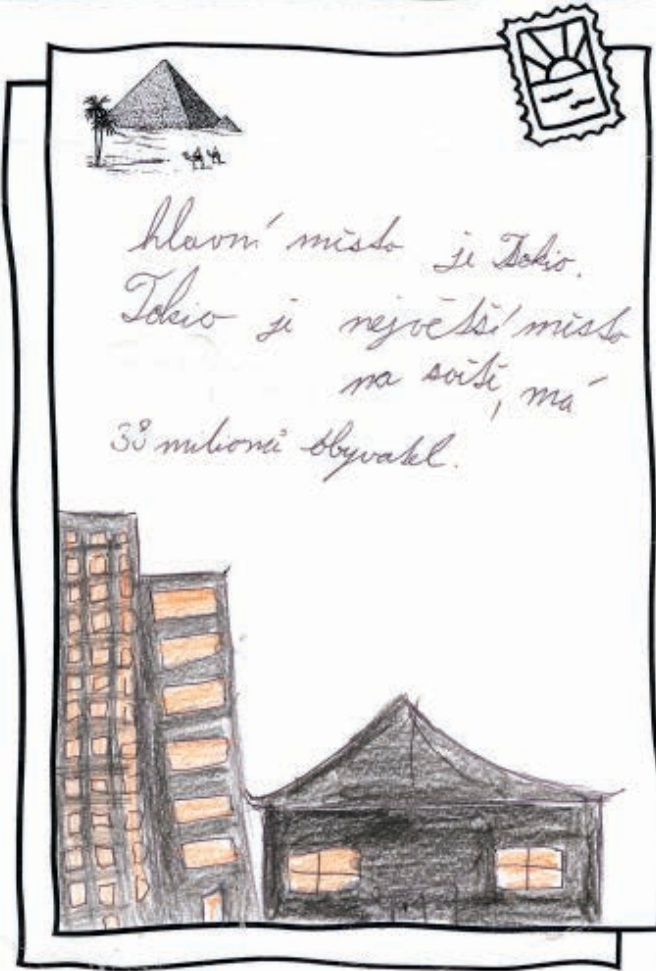 hlavní místo je Tokio.
Tokio je největší místo
na světě, má
38 milionů obyvatel.